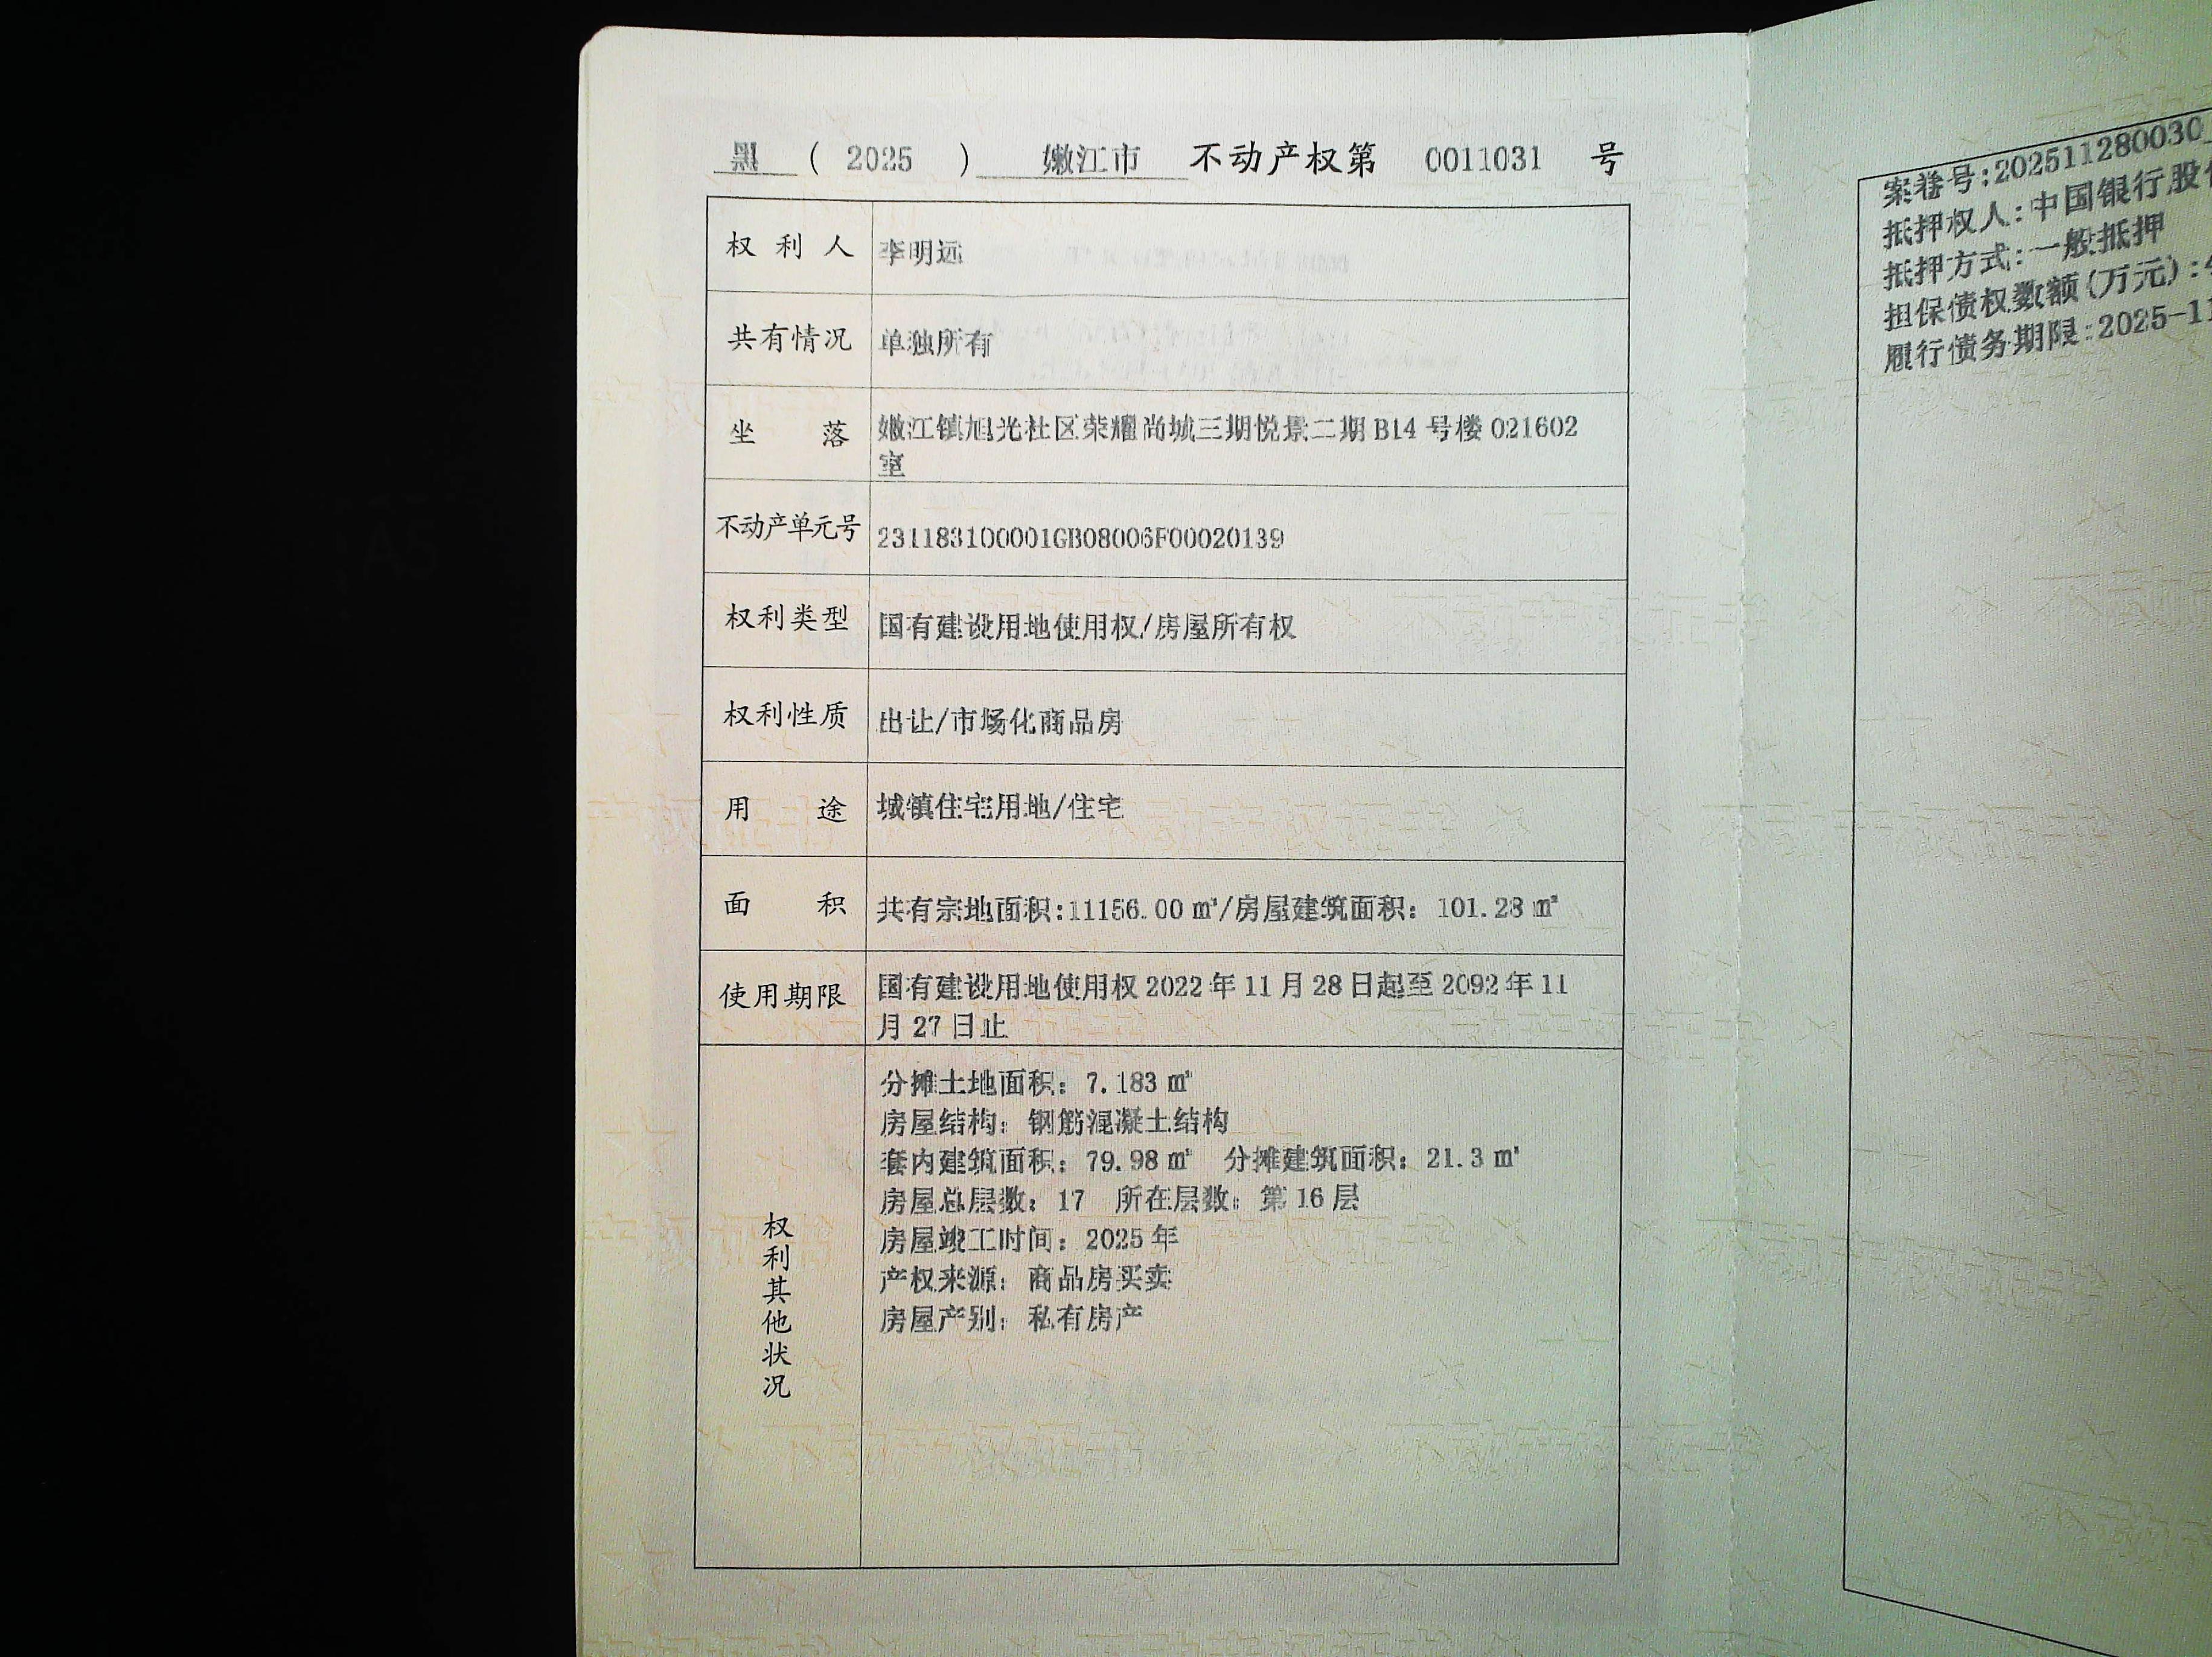 黑 ( 2025 ) 嫩江市 不动产权第 0011031 号
权利人 李明远
共有情况 单独所有
坐落 嫩江镇旭光社区荣耀尚城三期悦景二期 B14 号楼 021602
室
不动产单元号 231183100001GB08006F00020139
权利类型 国有建设用地使用权/房屋所有权
权利性质 出让/市场化商品房
用途 城镇住宅用地/住宅
面积 共有宗地面积:11156.00 ㎡/房屋建筑面积: 101.28 ㎡
使用期限 国有建设用地使用权 2022 年 11 月 28 日起至 2092 年 11
月 27 日止
权利其他状况
分摊土地面积: 7.183 ㎡
房屋结构: 钢筋混凝土结构
套内建筑面积: 79.98 ㎡ 分摊建筑面积: 21.3 ㎡
房屋总层数: 17 所在层数: 第 16 层
房屋竣工时间: 2025 年
产权来源: 商品房买卖
房屋产别: 私有房产
案卷号:202511280030
抵押权人:中国银行股
抵押方式:一般抵押
担保债权数额(万元):
履行债务期限:2025-11